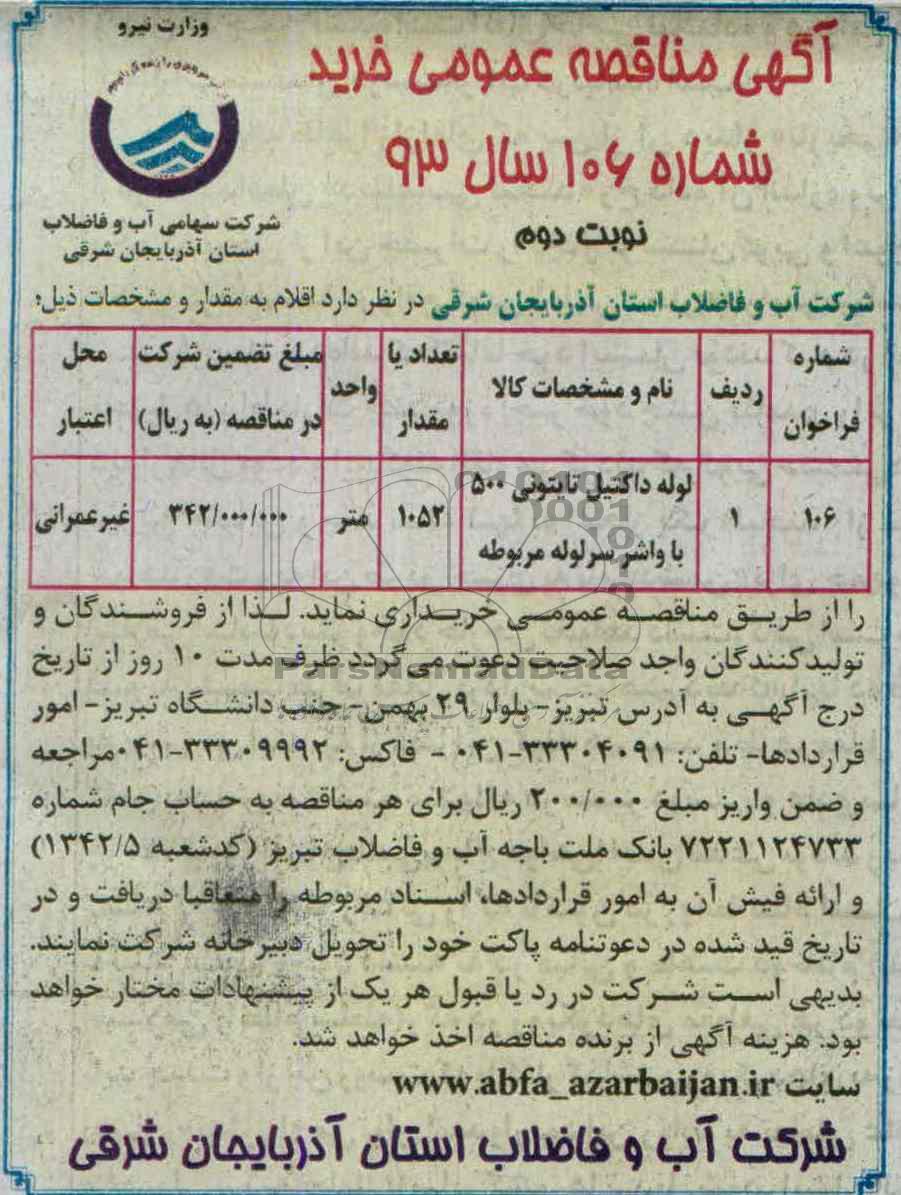 وزارت نیرو
شرکت سهامی آب و فاضلاب
استان آذربایجان شرقی
آگهی مناقصه عمومی خرید
شماره ۱۰۶ سال ۹۳
نوبت دوم
شرکت آب و فاضلاب استان آذربایجان شرقی در نظر دارد اقلام به مقدار و مشخصات ذیل:
شماره فراخوان
ردیف
نام و مشخصات کالا
تعداد یا مقدار
واحد
مبلغ تضمین شرکت در مناقصه (به ریال)
محل اعتبار
۱۰۶
۱
لوله داکتیل تایتونی ۵۰۰
با واشر سرلوله مربوطه
۱۰۵۲
متر
۳۴۲/۰۰۰/۰۰۰
غیرعمرانی
را از طریق مناقصه عمومی خریداری نماید. لذا از فروشندگان و
تولیدکنندگان واجد صلاحیت دعوت می گردد ظرف مدت ۱۰ روز از تاریخ
درج آگهی به آدرس تبریز- بلوار ۲۹ بهمن- جنب دانشگاه تبریز- امور
قراردادها- تلفن: ۳۳۳۰۴۰۹۱-۰۴۱ - فاکس: ۳۳۳۰۹۹۹۲-۰۴۱ مراجعه
و ضمن واریز مبلغ ۲۰۰/۰۰۰ ریال برای هر مناقصه به حساب جام شماره
۷۲۲۱۱۲۴۷۳۳ بانک ملت باجه آب و فاضلاب تبریز (کدشعبه ۱۳۴۲/۵)
و ارائه فیش آن به امور قراردادها، اسناد مربوطه را متعاقبا دریافت و در
تاریخ قید شده در دعوتنامه پاکت خود را تحویل دبیرخانه شرکت نمایند.
بدیهی است شرکت در رد یا قبول هر یک از پیشنهادات مختار خواهد
بود. هزینه آگهی از برنده مناقصه اخذ خواهد شد.
سایت www.abfa_azarbaijan.ir
شرکت آب و فاضلاب استان آذربایجان شرقی
ParsNamadData